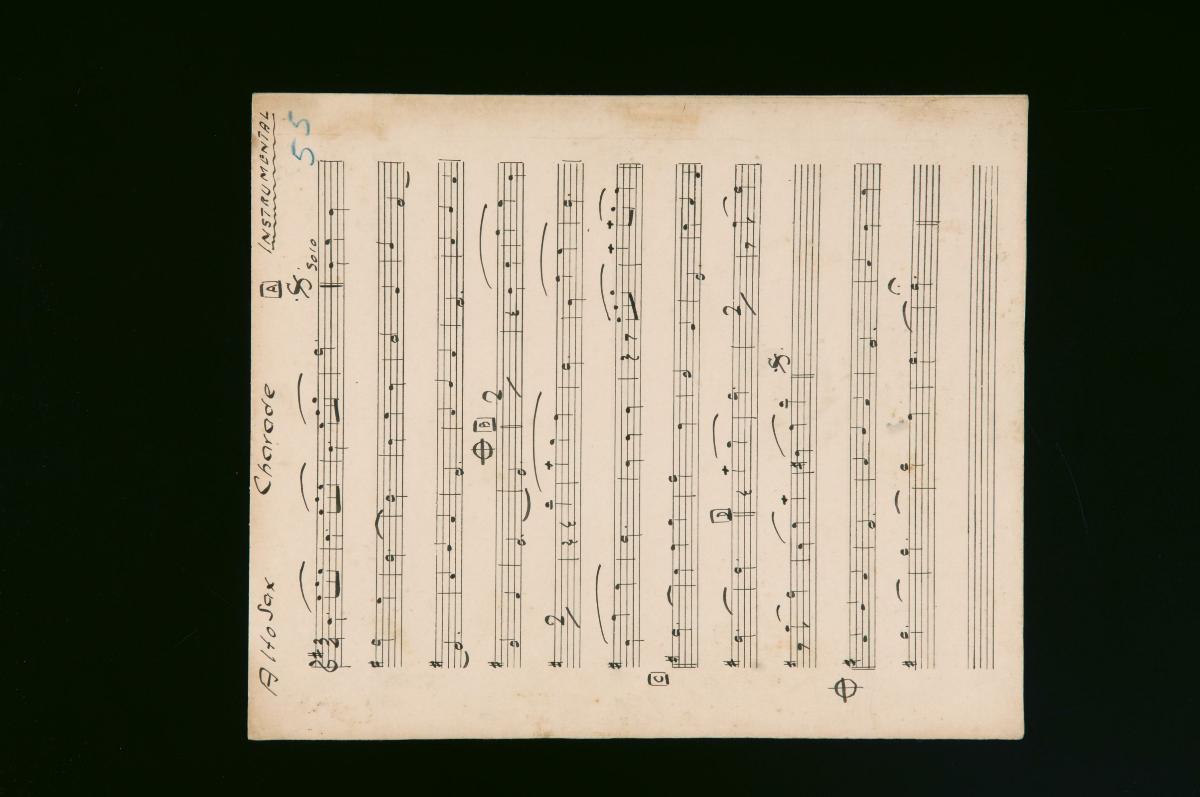 Alto Sax Charade A INSTRUMENTAL
55
Solo
3
2
B
2
2
C
D
2